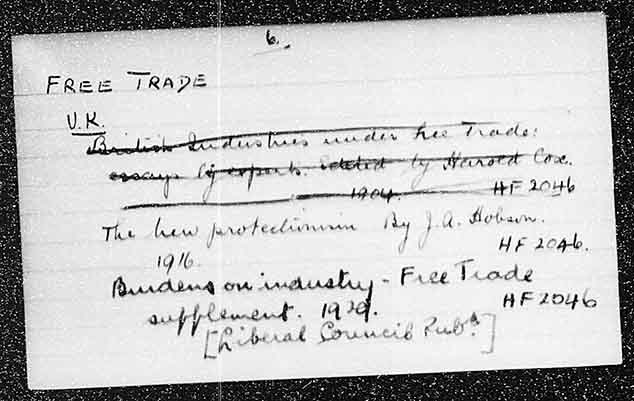 6.
FREE TRADE
U.K.
British Industries under free Trade:
essays by experts. Edited by Harold Cox.
1904. HF 2046
The new protectionism By J.A. Hobson.
1916. HF 2046.
Burdens on industry - Free Trade
supplement. 1929. HF 2046
[Liberal Council Pubn.]